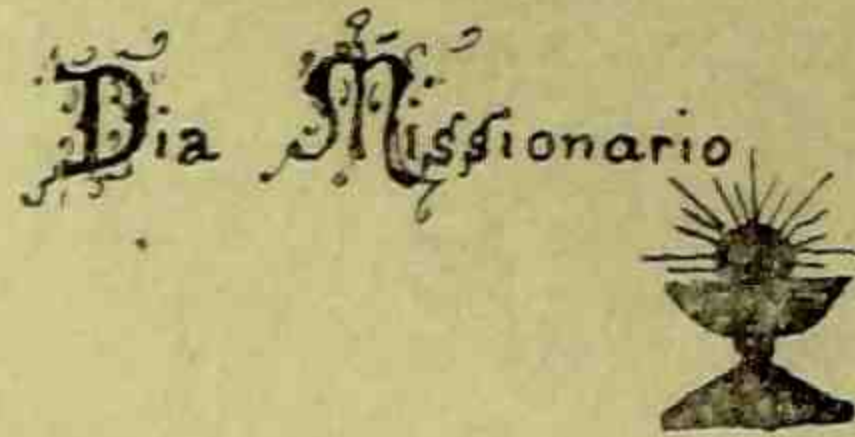 Dia Missionario